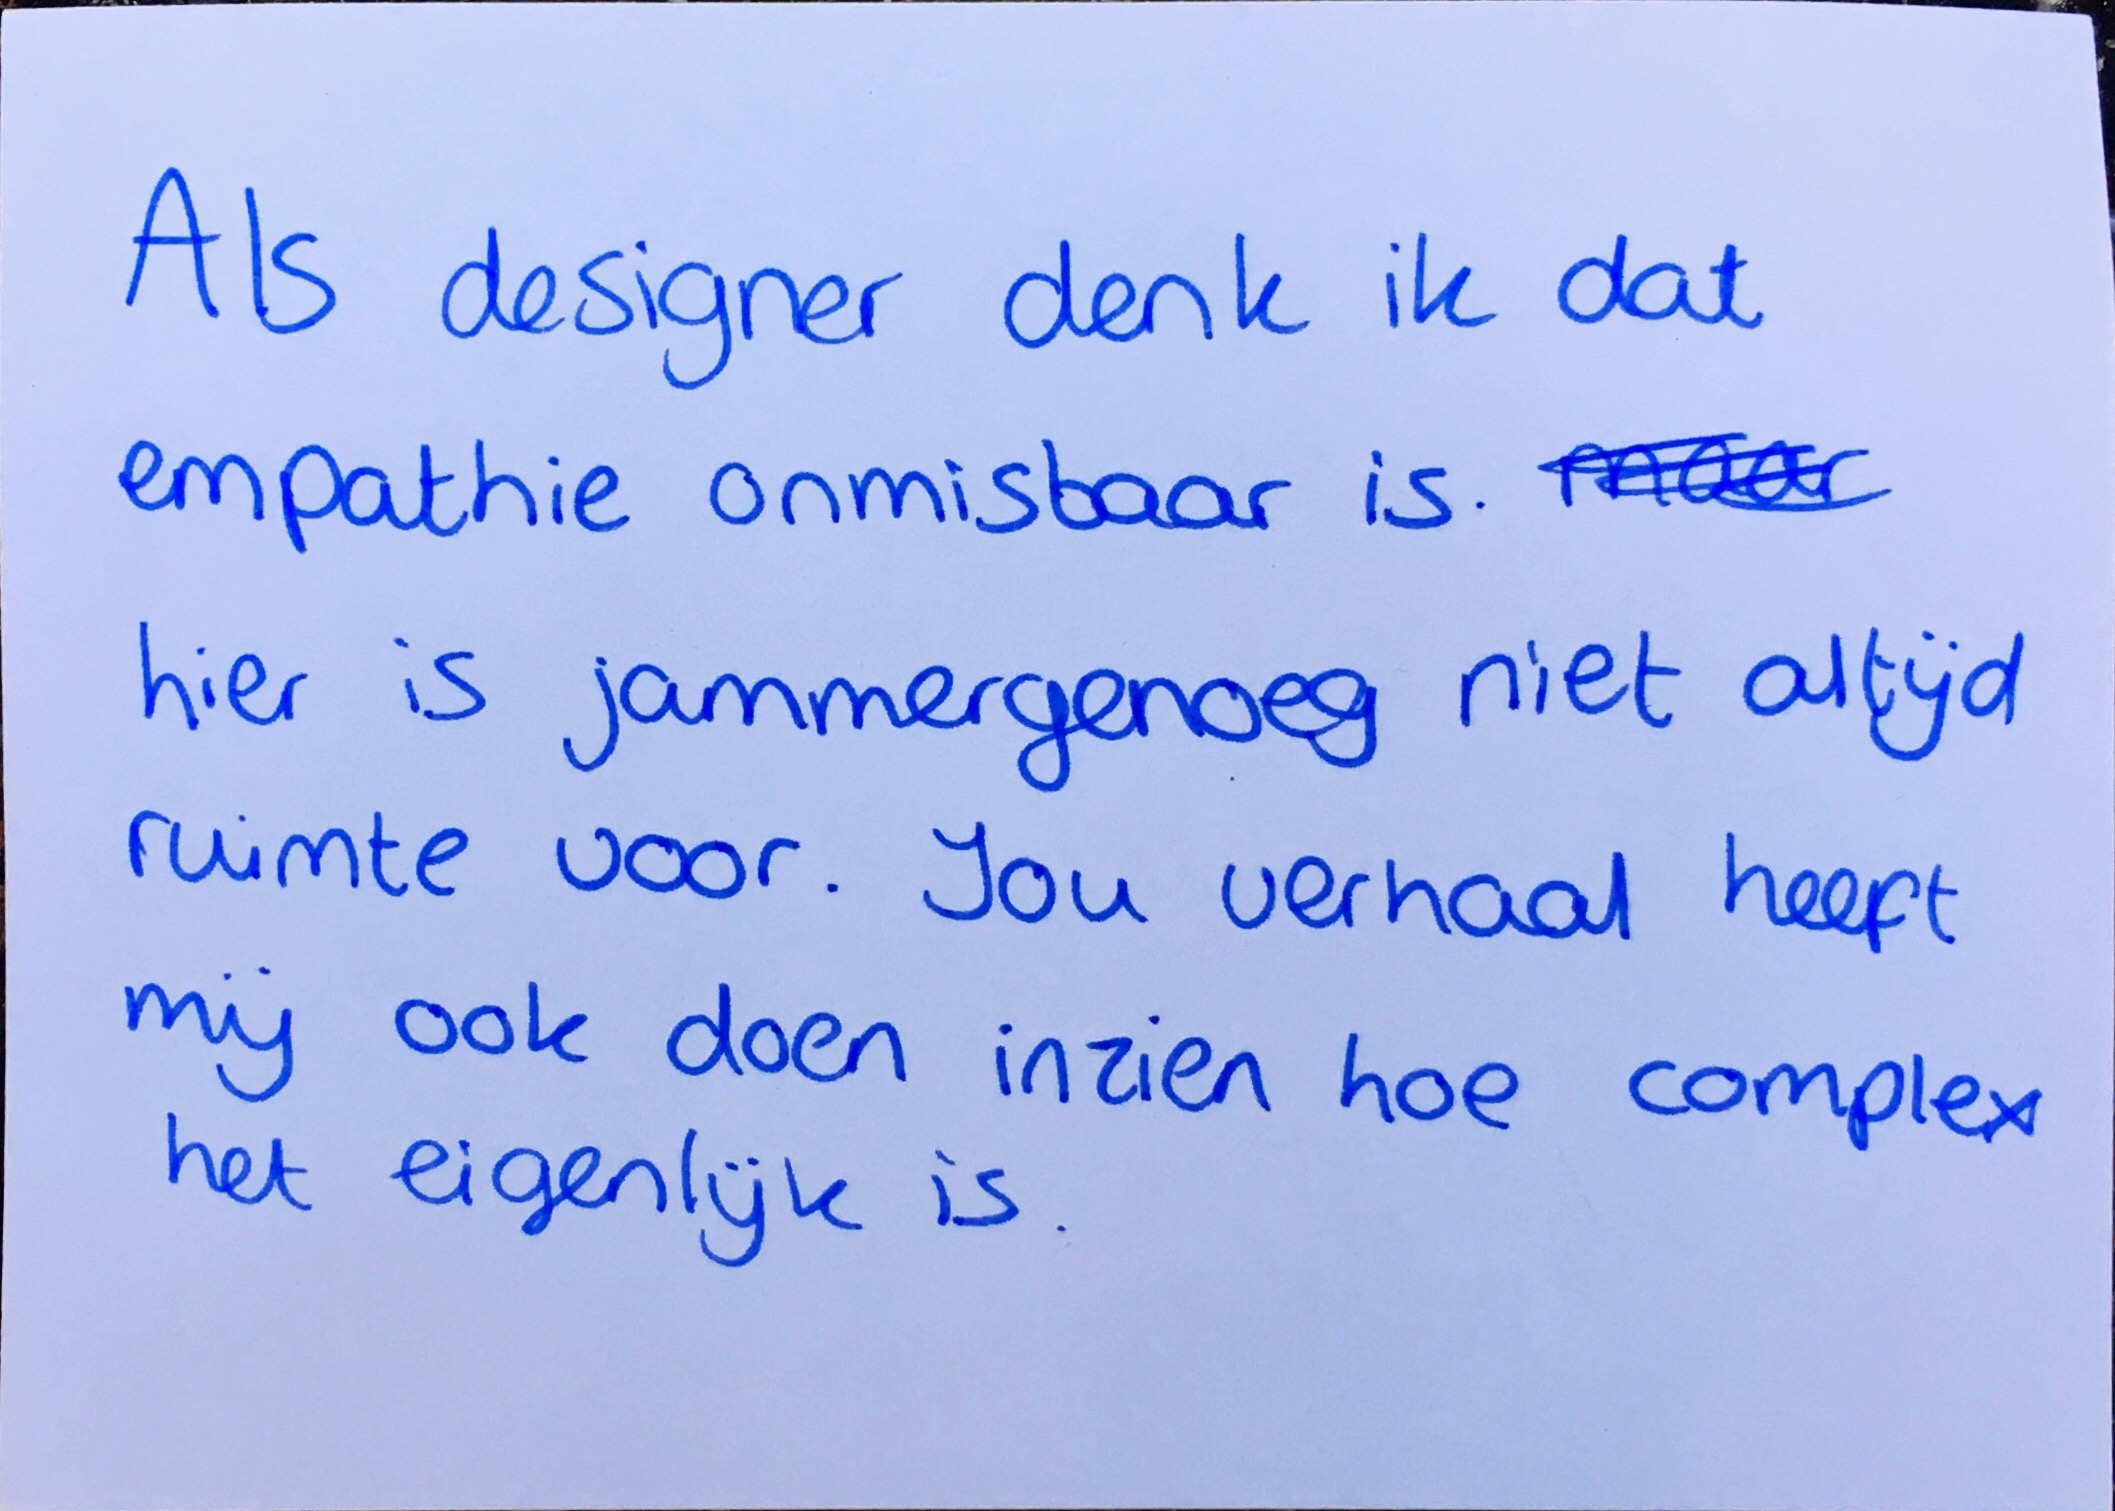 Als designer denk ik dat
empathie onmisbaar is. maar
hier is jammergenoeg niet altijd
ruimte voor. Jou verhaal heeft
mij ook doen inzien hoe complex
het eigenlijk is.